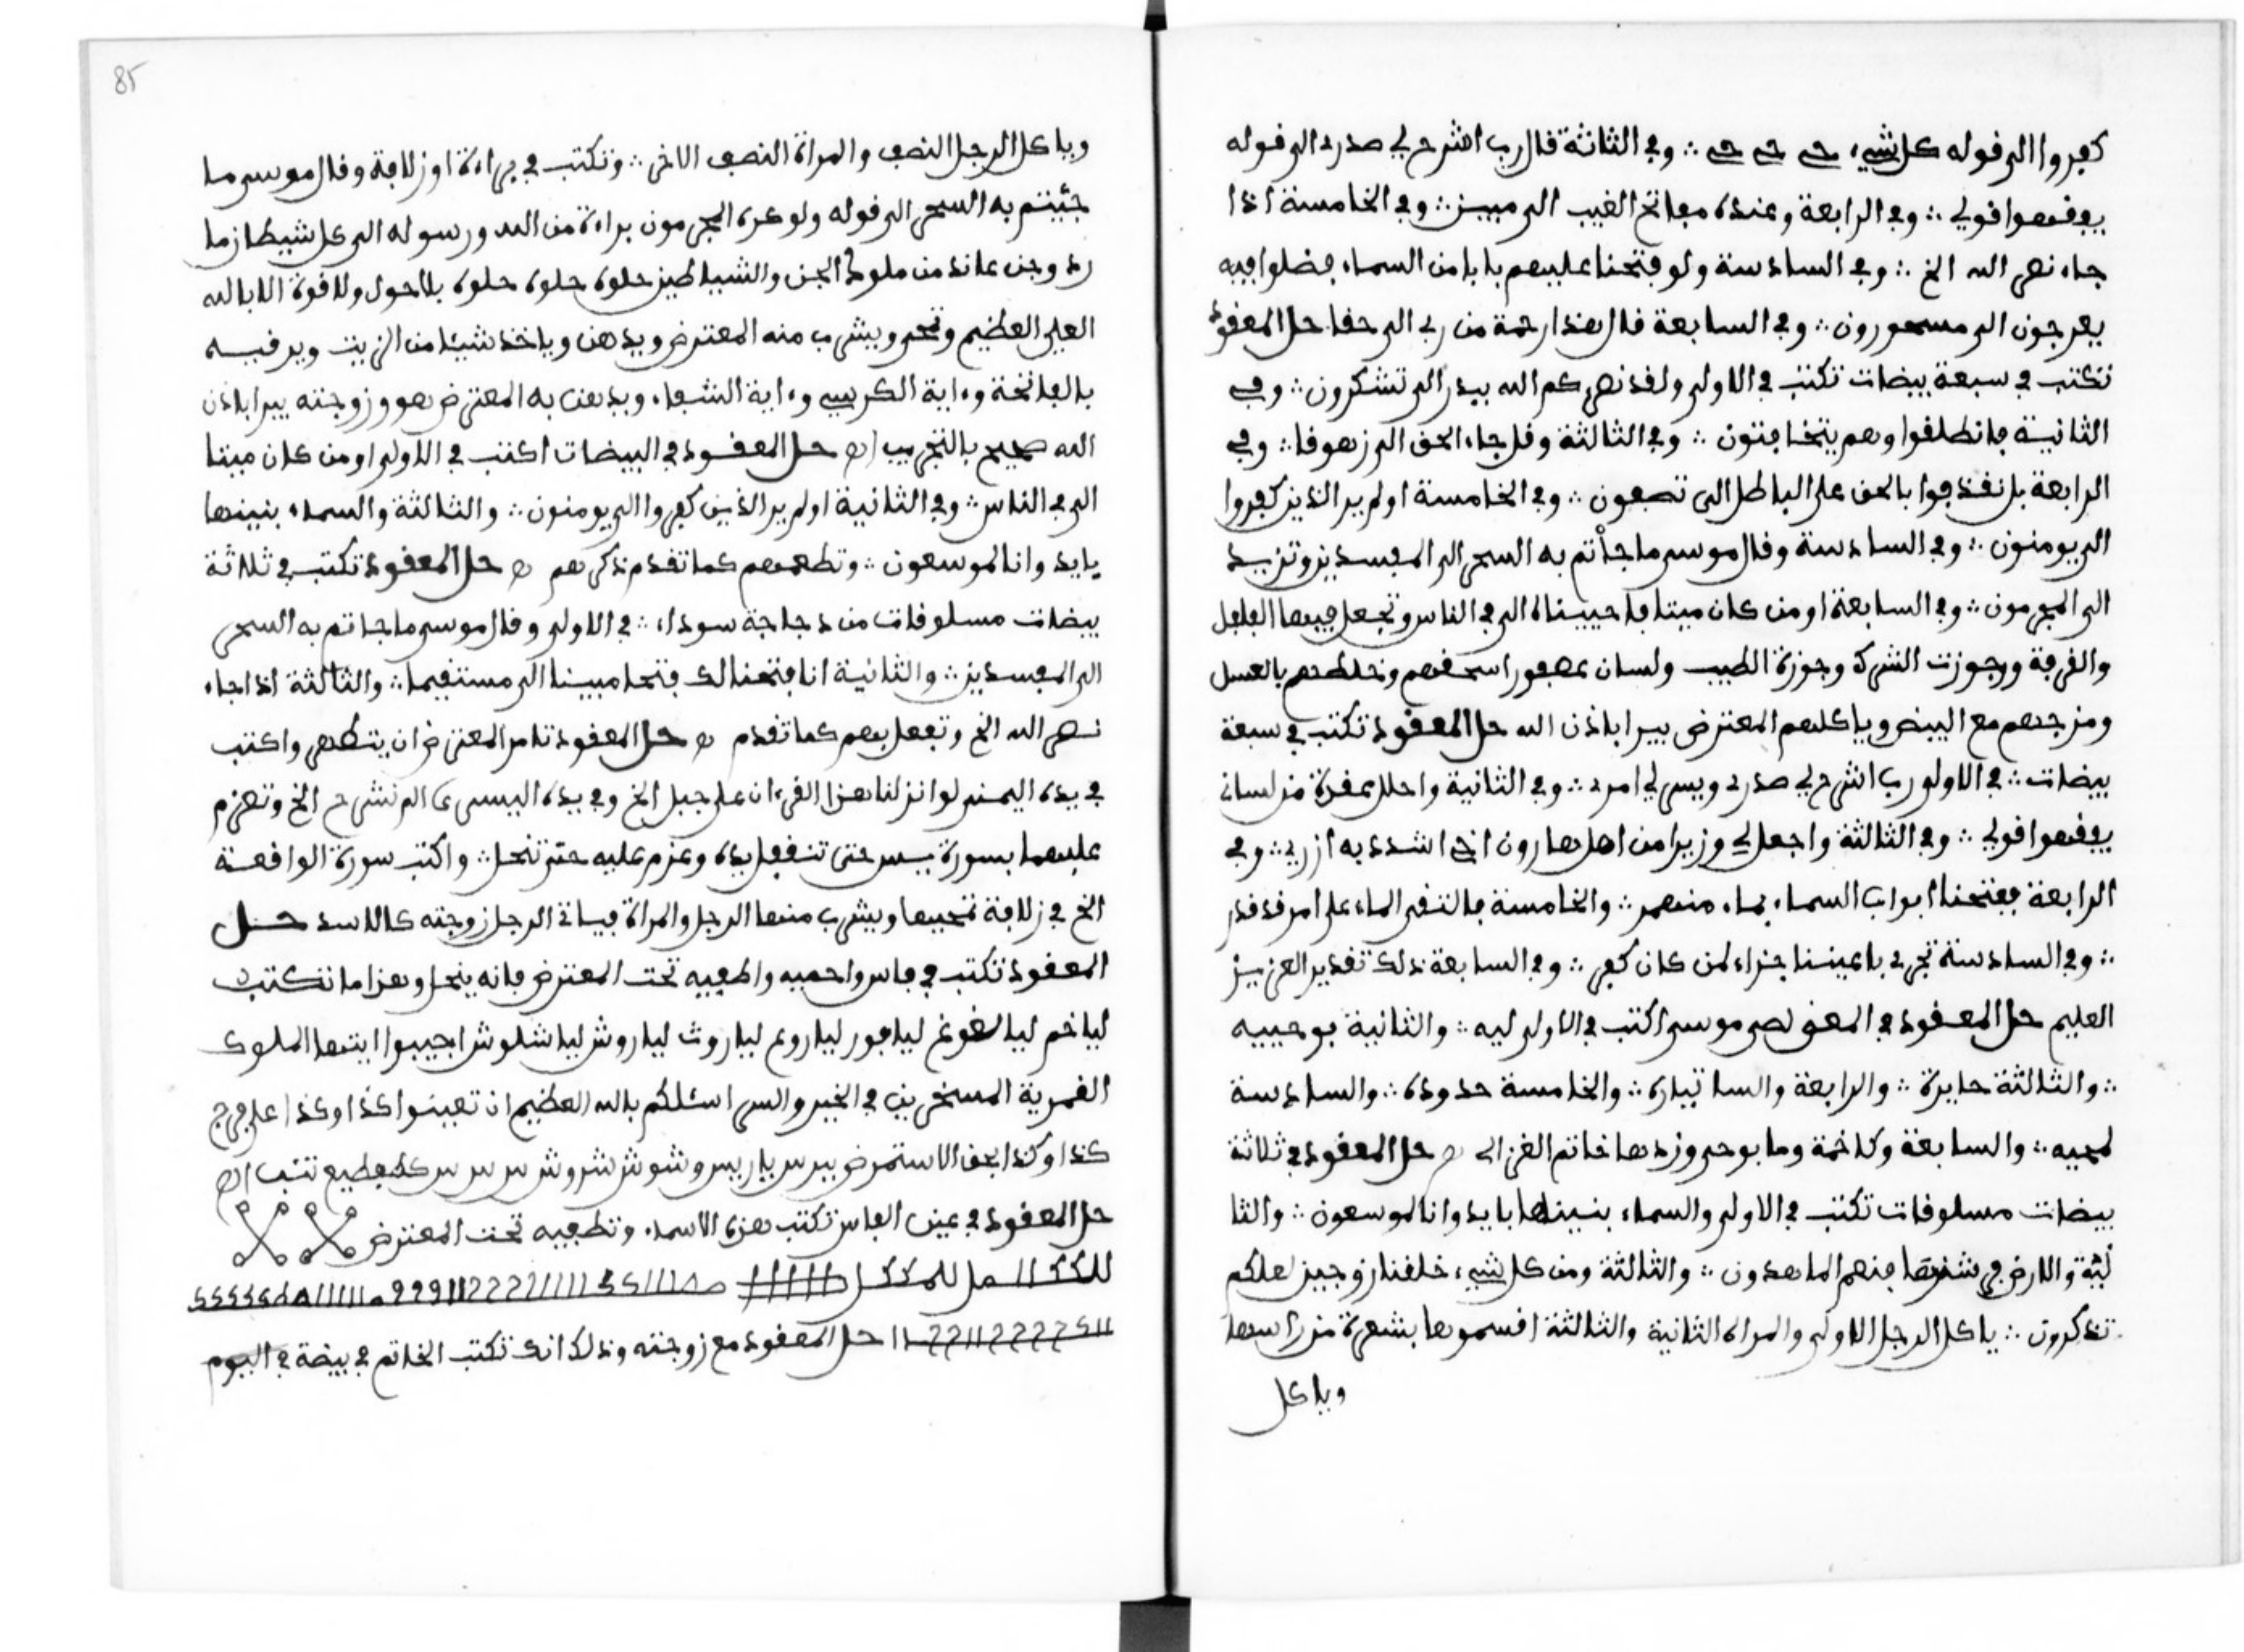 كفروا الى قوله كل شيء حي حي حي ∴ وفي الثالثة قال رب اشرح لي صدري الى قوله
يفقهوا قولي ∴ وفي الرابعة وعنده مفاتح الغيب الى مبين ∴ وفي الخامسة اذا
جاء نصر الله الخ ∴ وفي السادسة ولو فتحنا عليهم بابا من السماء فضلوا فيه
يعرجون الى مسحورون ∴ وفي السابعة قال هذا رحمة من ربي الى حقا حل المعقود
تكتب في سبعة بيضات تكتب في الاولى ولقد نصركم الله ببدر الى تشكرون ∴ وفي
الثانية فانطلقوا وهم يتخافتون ∴ وفي الثالثة وقل جاء الحق الى زهوقا ∴ وفي
الرابعة بل نقذفوا بالحق على الباطل الى تصفون ∴ وفي الخامسة اولم ير الذين كفروا
الى يومنون ∴ وفي السادسة وقال موسى ما جأتم به السحر الى المفسدين وتزيد
الى المجرمون ∴ وفي السابعة او من كان ميتا فاحييناه الى في الناس وتجعل فيها الفلفل
والقرفة وجوزت الشرك وجوزة الطيب ولسان عصفور اسحقهم وتخلطهم بالعسل
ومزجهم مع البيض وياكلهم المعترض يبرا باذن الله حل المعقود تكتب في سبعة
بيضات ∴ في الاولى رب اشرح لي صدري ويسر لي امري ∴ وفي الثانية واحلل عقدة من لساني
يفقهوا قولي ∴ وفي الثالثة واجعل لي وزيرا من اهلي هارون اخي اشدد به ازري ∴ وفي
الرابعة ففتحنا ابواب السماء بماء منهمر ∴ والخامسة فالتقى الماء على امر قد قدر
∴ وفي السادسة تجري باعيننا جزاء لمن كان كفر ∴ وفي السابعة ذلك تقدير العزيز
العليم حل المعقود في اكتب في الاولى ليه ∴ والثانية بوحييه
∴ والثالثة حايرة ∴ والرابعة ∴ والخامسة حدوده ∴ والسادسة
لمجيه ∴ والسابعة وزدها خاتم الغزالي حل المعقود في ثلاثة
بيضات مسلوقات تكتب في الاولى والسماء بنيناها بايد وانا لموسعون ∴ والثا
نية والارض فرشنها فنعم الماهدون ∴ والثالثة ومن كل شيء خلقنا زوجين لعلكم
تذكرون ∴ ياكل الرجل الاولى والمراة الثانية والثالثة اقسموها بشعرة من راسها
وياكل
85
وياكل الرجل النصف والمراة النصف الاخر ∴ وتكتب في براءة او زلافة وقال موسى ما
جئتم به السحر الى قوله ولو كره المجرمون براءة من الله ورسوله الى كل شيطان ما
رد وجن عاند من ملوك الجن والشياطين حلوه حلوه حلوه بلا حول ولا قوة الا بالله
العلي العظيم وتمحى ويشرب منه المعترض ويدهن وياخذ شيئا من الزيت ويرقيه
بالفاتحة وءاية الكرسي وءاية الشفاء ويدهن به المعترض هو وزوجته يبرا باذن
الله صحيح بالتجريب اه حل المعقود في البيضات اكتب في الاولى او من كان ميتا
الى في الناس ∴ وفي الثانية اولم ير الذين كفروا الى يومنون ∴ والثالثة والسماء بنينها
بايد وانا لموسعون ∴ وتطعمهم كما تقدم ذكرهم حل المعقود تكتب في ثلاثة
بيضات مسلوقات من دجاجة سوداء ∴ في الاولى وقال موسى ما جاتم به السحر
الى المفسدين ∴ والثانية انا فتحنا لك فتحا مبينا الى مستقيما ∴ والثالثة اذا جاء
نصر الله الخ وتفعل بهم كما تقدم حل المعقود تامر المعترض ان يتطهر واكتب
في يده اليمنى لو انزلنا هذا القرءان على جبل الخ وفي يده اليسرى الم نشرح الخ وتعزم
عليهما بسورة يس حتى تنقفل يده وعزم عليه حتى تنحل ∴ واكتب سورة الواقعة
الخ في زلافة تمحيها ويشرب منها الرجل والمراة فياتي الرجل زوجته كالاسد حل
المعقود تكتب في فاس واحميه واطفيه تحت المعترض فانه ينحل وهذا ما تكتب
لياخم ليالغوغ ليافور لياروع لياروث لياروش لياشلوش اجيبوا ايتها الملوك
القمرية المسخرين في الخير والسر اسئلكم بالله العظيم ان تعينوا كذا وكذا على فرج
كذا وكذا بحق
حل المعقود في عين الفاس تكتب هذه الاسماء وتطفيه تحت المعترض
حل المعقود مع زوجته وذلك انك تكتب الخاتم في بيضة في اليوم